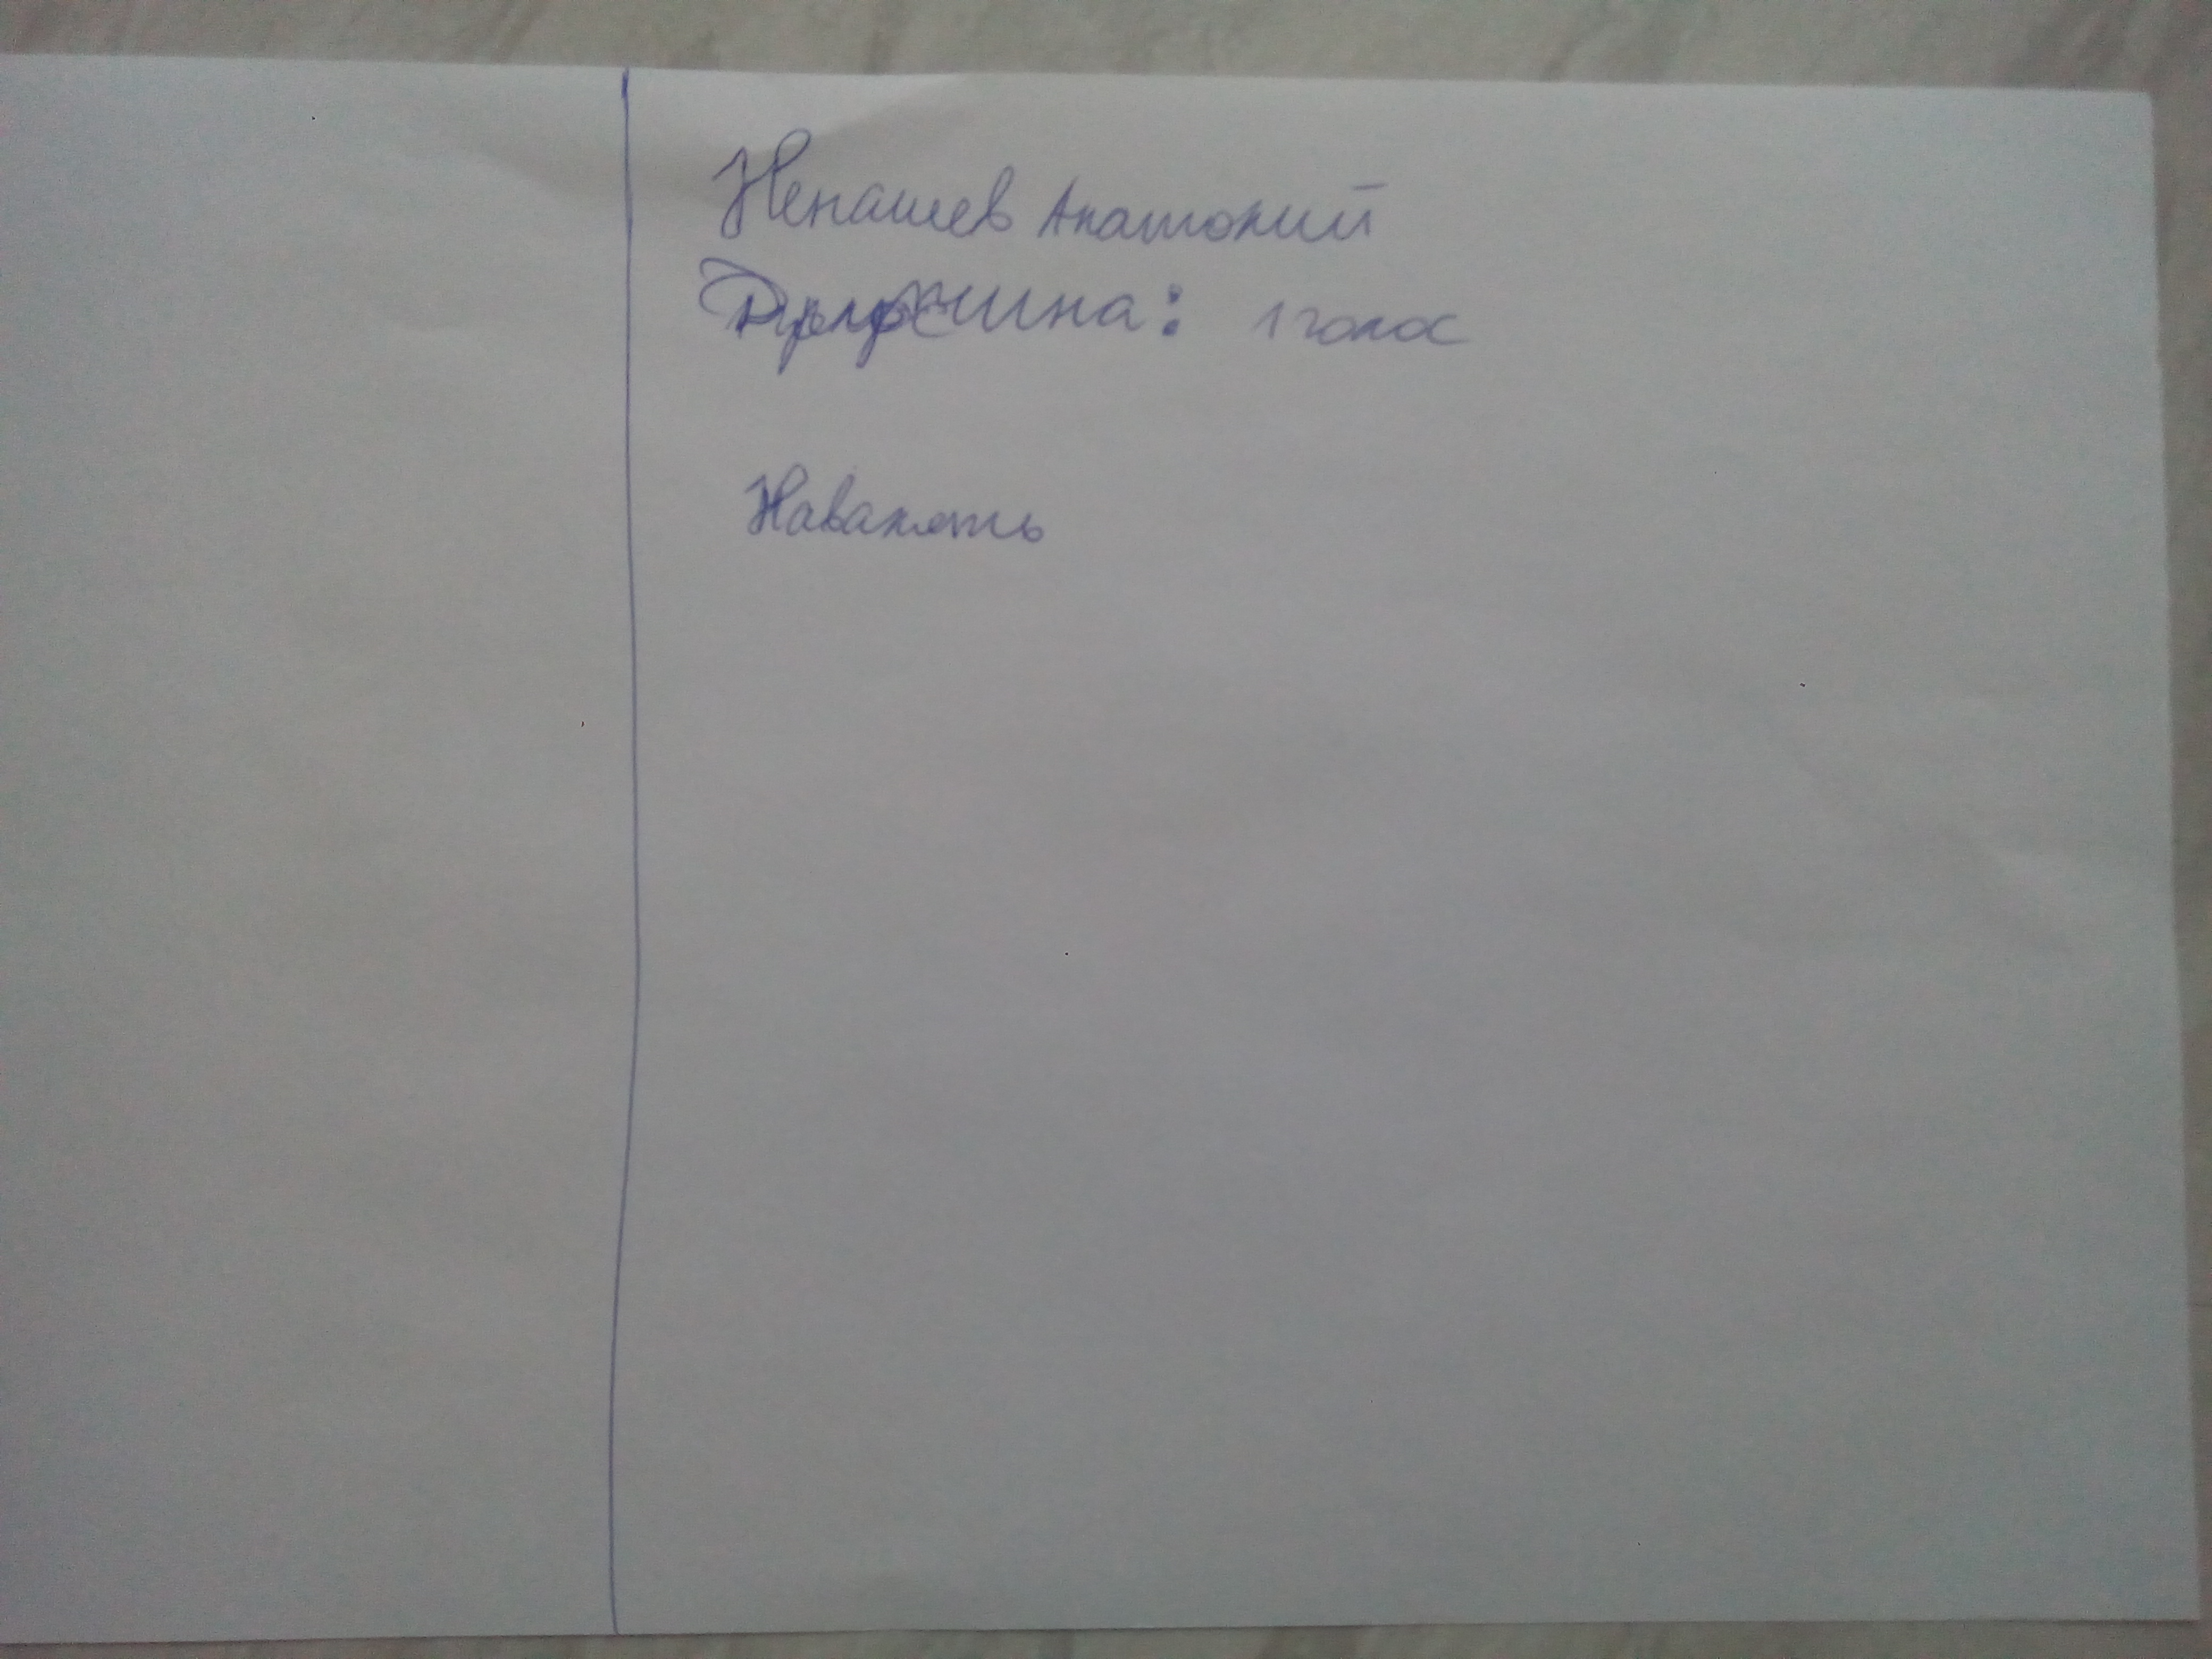 Ненашев Анатолий
Дружина: 1 голос
Навалять